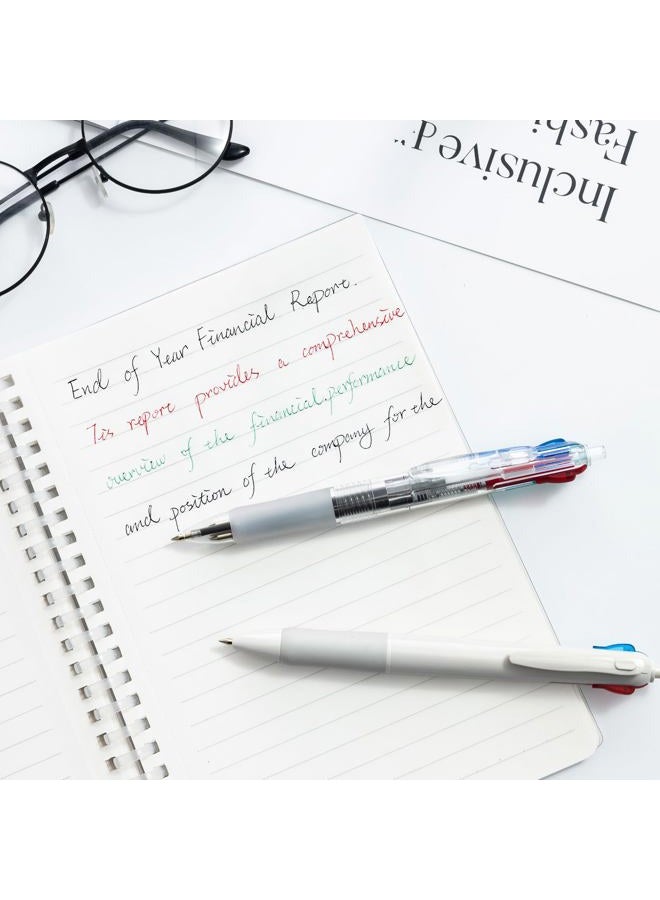 Inclusive d"
Fashi
End of Year Financial Report.
Tis report provides a comprehensive
overview of the financial.performance
and position of the company for the